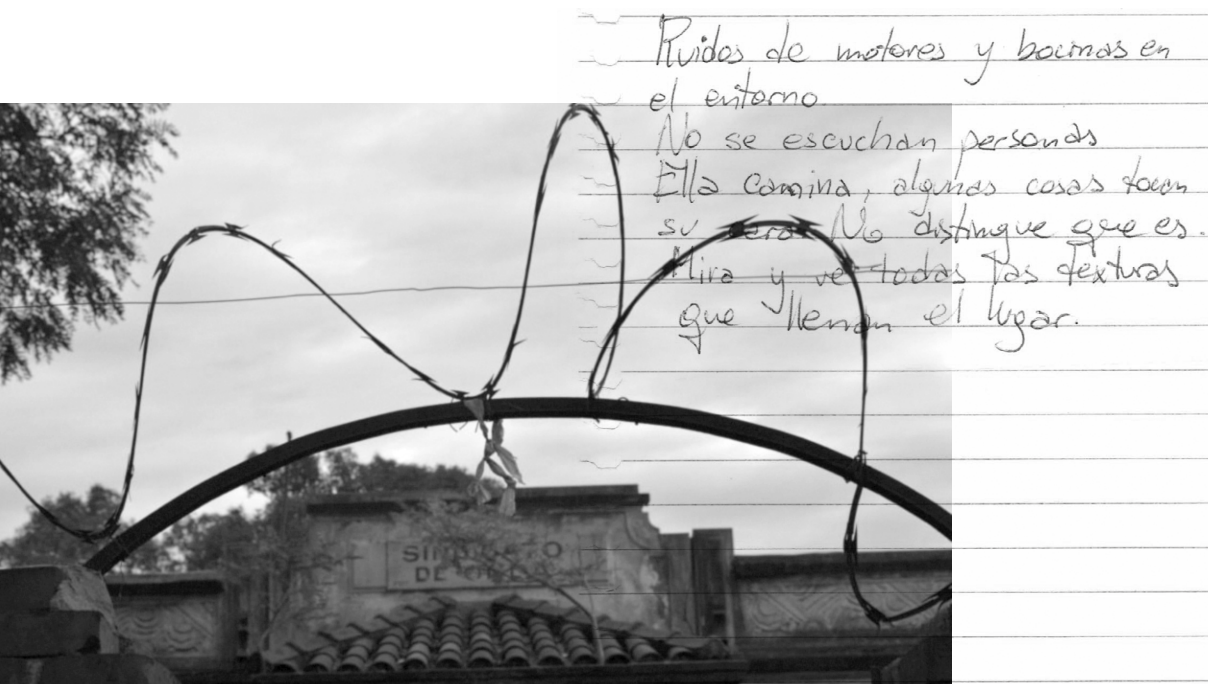 Ruidos de motores y bocinas en
el entorno
No se escuchan personas
Ella camina, algunas cosas tocan
su cara. No distingue que es.
Mira y ve todas las texturas
que llenan el lugar.
SINDICATO
DE